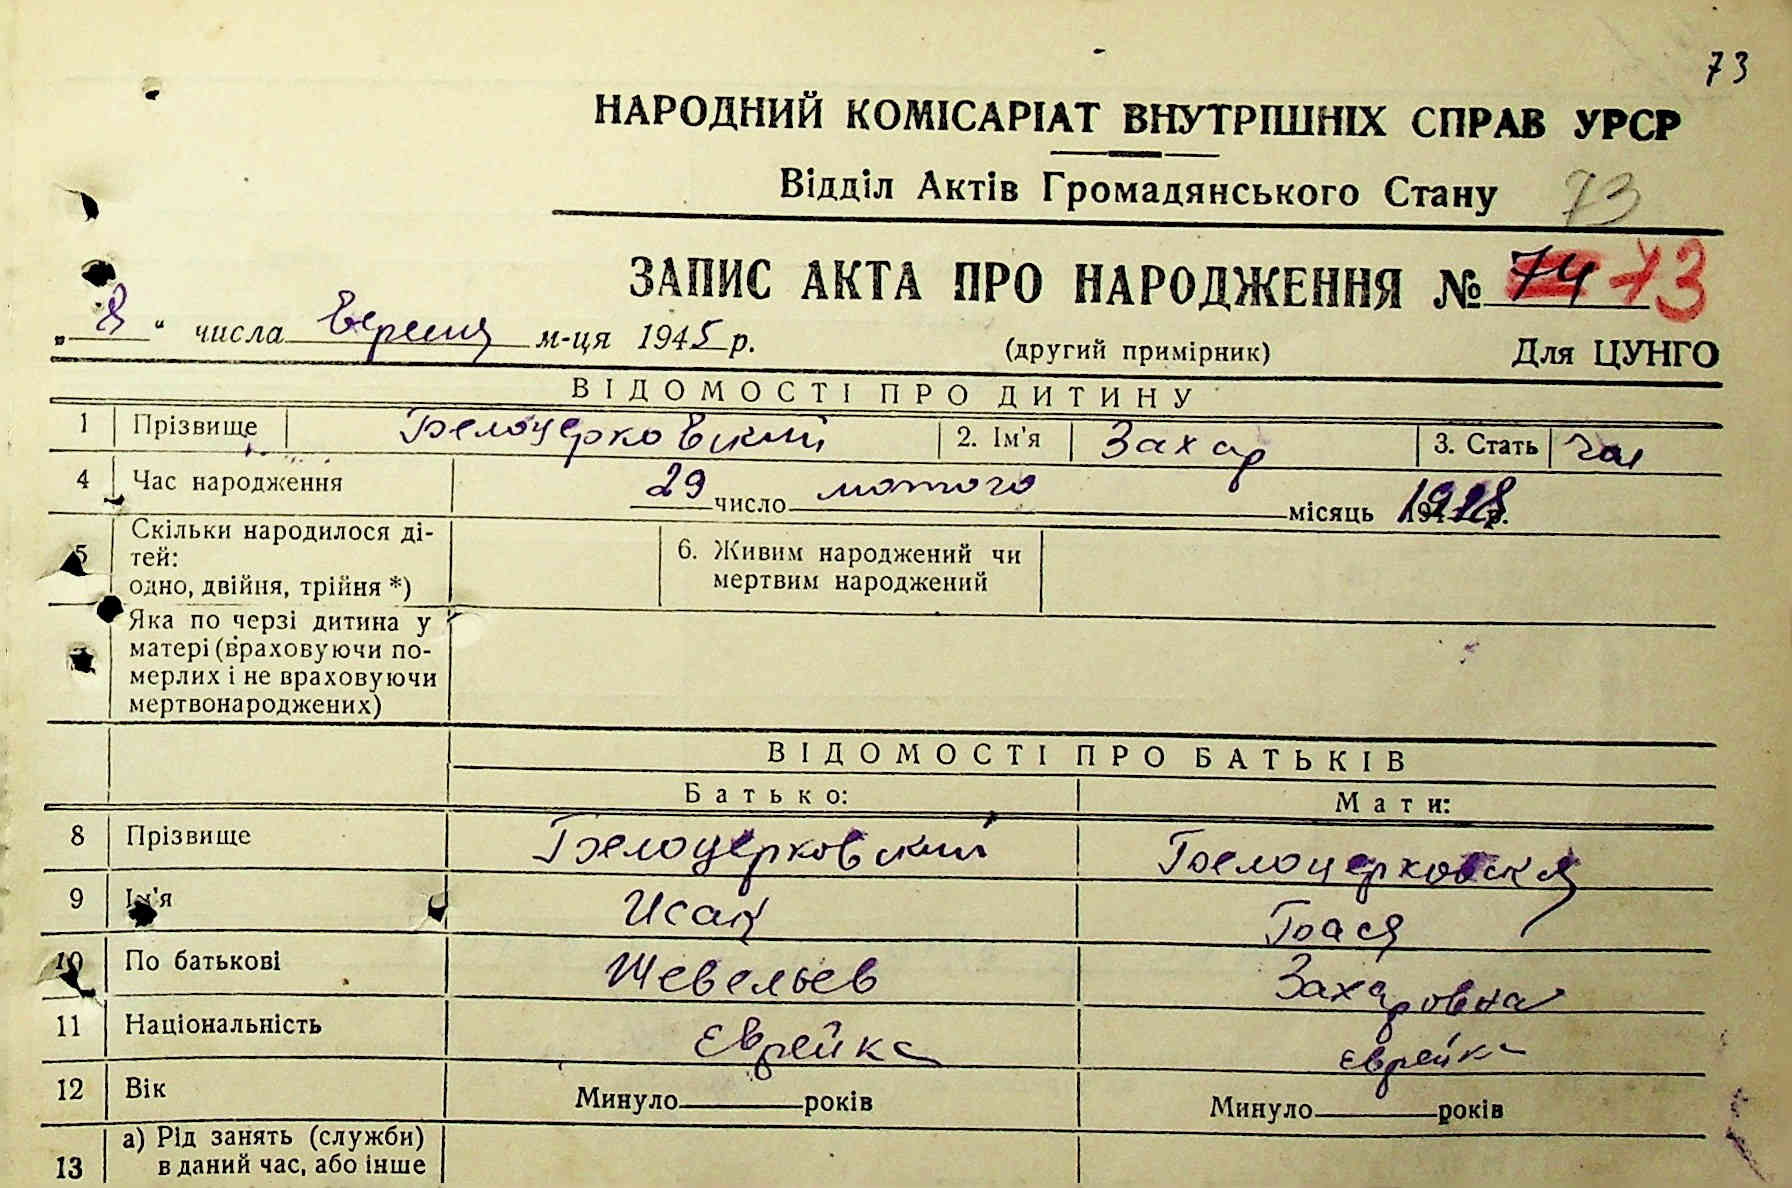 73
НАРОДНИЙ КОМІСАРІАТ ВНУТРІШНІХ СПРАВ УРСР
Відділ Актів Громадянського Стану 73
ЗАПИС АКТА ПРО НАРОДЖЕННЯ № 74 73
„8“ числа Вересня м-ця 1945 р. (другий примірник) Для ЦУНГО
ВІДОМОСТІ ПРО ДИТИНУ
1 Прізвище Белоцерковский 2. Ім'я Захар 3. Стать чол
4 Час народження 29 число лютого місяць 1928 р.
5 Скільки народилося ді-
тей:
одно, двійня, трійня *)
6. Живим народжений чи
мертвим народжений
Яка по черзі дитина у
матері (враховуючи по-
мерлих і не враховуючи
мертвонароджених)
ВІДОМОСТІ ПРО БАТЬКІВ
Батько: Мати:
8 Прізвище Белоцерковский Белоцерковская
9 Ім'я Исак Бася
10 По батькові Шевельев Захаровна
11 Національність Єврейка єврейка
12 Вік Минуло років Минуло років
13 а) Рід занять (служби)
в даний час, або інше